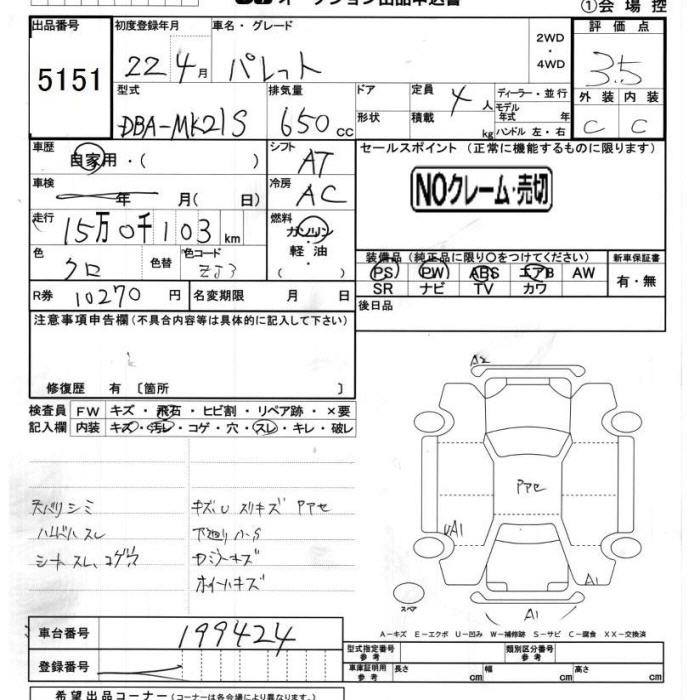 オークション出品申込書
①会場控
出品番号 初度登録年月 車名・グレード 2WD・4WD 評価点
5151 22 4月 パレット 3.5
型式 排気量 ドア 定員 4人 ディーラー・並行 外装 内装
DBA-MK21S 650cc 形状 積載 kg モデル年式 年 ハンドル 左・右 C C
車歴 自家用・( ) シフト AT セールスポイント (正常に機能するものに限ります)
車検 年 月( 日) 冷房 AC NOクレーム・売切
走行 15万0千103km 燃料 ガソリン・軽油・( )
色 クロ 色替 色コード ZJ3 装備品 (純正品に限り〇をつけてください) 新車保証書
PS PW ABS エアB AW 有・無
SR ナビ TV カワ
R券 10270円 名変期限 月 日 後日品
注意事項申告欄(不具合内容等は具体的に記入して下さい)
修復歴 有 〔箇所 〕
検査員 FW キズ・飛石・ヒビ割・リペア跡・×要
記入欄 内装 キズ・汚レ・コゲ・穴・スレ・キレ・破レ
天バリシミ キズU スリキズ アアセ
ハンドルスレ 下廻りハS
シートスレ、コゲ穴
ホイールキズ
A2
アアセ
UA1
A1
A1
スペア
A-キズ E-エクボ U-凹み W-補修跡 S-サビ C-腐食 XX-交換済
車台番号 199424 型式指定番号 参考 類別区分番号 参考
登録番号 車庫証明用 参考 長さ cm 幅 cm 高さ cm
希望出品コーナー(コーナーは各会場により異なります)